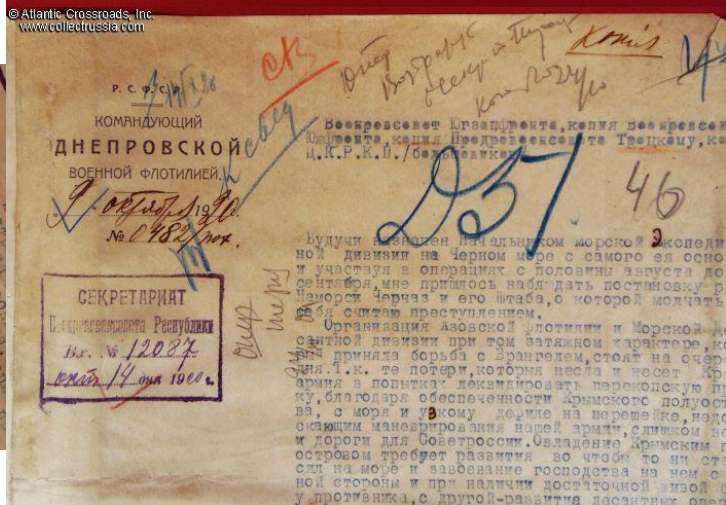 © Atlantic Crossroads, Inc.
www.collectrussia.com
Копия
Р. С. Ф. С. Р.
КОМАНДУЮЩИЙ
ДНЕПРОВСКОЙ
ВОЕННОЙ ФЛОТИЛИЕЙ.
9 октября 1920.
№ 0482/пох.
46
СЕКРЕТАРИАТ
Республики
Вх. № 12087
окт 14 дня 1920 г.
Югзапфронта, копия
Югфронта, копия Предреввоенсовета Троцкому, ко
Ц.К.Р.К.П./большевиков
Будучи назначен Начальником морской Экспеди
ной дивизии на Черном море с самого ея осно
и участвуя в операциях с половины августа до
сентября, мне пришлось наблюдать постановку р
Наморси Черназ и его Штаба, о которой молчать
себя считаю преступлением.
Организация Азовской Флотилии и Морской
сантной дивизии при том затяжном характере, ко
приняла борьба с Врангелем, стоят на очер
дня. Т.к. те потери, которыя несла и несет Кр
армия в попытках леквидировать перекопскую п
ку, благодаря обеспеченности Крымского полуост
ва, с моря и узкому дефиле на перешейке, недо
скающим маневрирования нашей армии, слишком не
и дороги для Советроссии. Овладение Крымским п
островом требует развития во чтобы то ни ста
сил на море и завоевание господства на нем с
ной стороны и при наличии достаточной живой с
у противника, с другой-развитие десантных опер